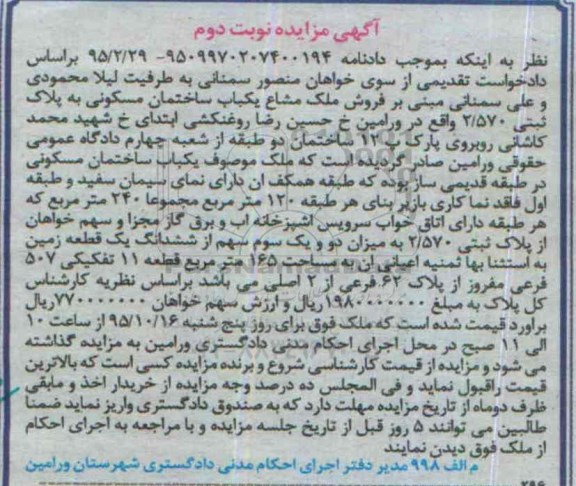 آگهی مزایده نوبت دوم
نظر به اینکه بموجب دادنامه ۹۵۰۹۹۷۰۲۰۷۴۰۰۱۹۴- ۹۵/۲/۲۹ براساس
دادخواست تقدیمی از سوی خواهان منصور سمنانی به طرفیت لیلا محمودی
و علی سمنانی مبنی بر فروش ملک مشاع یکباب ساختمان مسکونی به پلاک
ثبتی ۲/۵۷۰ واقع در ورامین خ حسین رضا روغنکشی ابتدای خ شهید محمد
کاشانی روبروی پارک پ ۱۲ ساختمان دو طبقه از شعبه چهارم دادگاه عمومی
حقوقی ورامین صادر گردیده است که ملک موصوف یکباب ساختمان مسکونی
در طبقه قدیمی ساز بوده که طبقه همکف ان دارای نمای سیمان سفید و طبقه
اول فاقد نما کاری بازیر بنای هر طبقه ۱۲۰ متر مربع مجموعا ۲۴۰ متر مربع که
هر طبقه دارای اتاق خواب سرویس اشپزخانه اب و برق گاز مجزا و سهم خواهان
از پلاک ثبتی ۲/۵۷۰ به میزان دو و یک سوم سهم از ششدانگ یک قطعه زمین
به استثنا بها ثمنیه اعیانی ان به مساحت ۱۶۵ متر مربع قطعه ۱۱ تفکیکی ۵۰۷
فرعی مفروز از پلاک ۶۲ فرعی از ۲ اصلی می باشد براساس نظریه کارشناس
کل پلاک به مبلغ ۱۹۸۰۰۰۰۰۰۰ ریال و ارزش سهم خواهان ۷۷۰۰۰۰۰۰۰ ریال
براورد قیمت شده است که ملک فوق برای روز پنج شنبه ۹۵/۱۰/۱۶ از ساعت ۱۰
الی ۱۱ صبح در محل اجرای احکام مدنی دادگستری ورامین به مزایده گذاشته
می شود و مزایده از قیمت کارشناسی شروع و برنده مزایده کسی است که بالاترین
قیمت راقبول نماید و فی المجلس ده درصد وجه مزایده از خریدار اخذ و مابقی
ظرف دوماه از تاریخ مزایده مهلت دارد که به صندوق دادگستری واریز نماید ضمنا
طالبین می توانند ۵ روز قبل از تاریخ جلسه مزایده و با مراجعه به اجرای احکام
از ملک فوق دیدن نمایند
م الف ۹۹۸ مدیر دفتر اجرای احکام مدنی دادگستری شهرستان ورامین